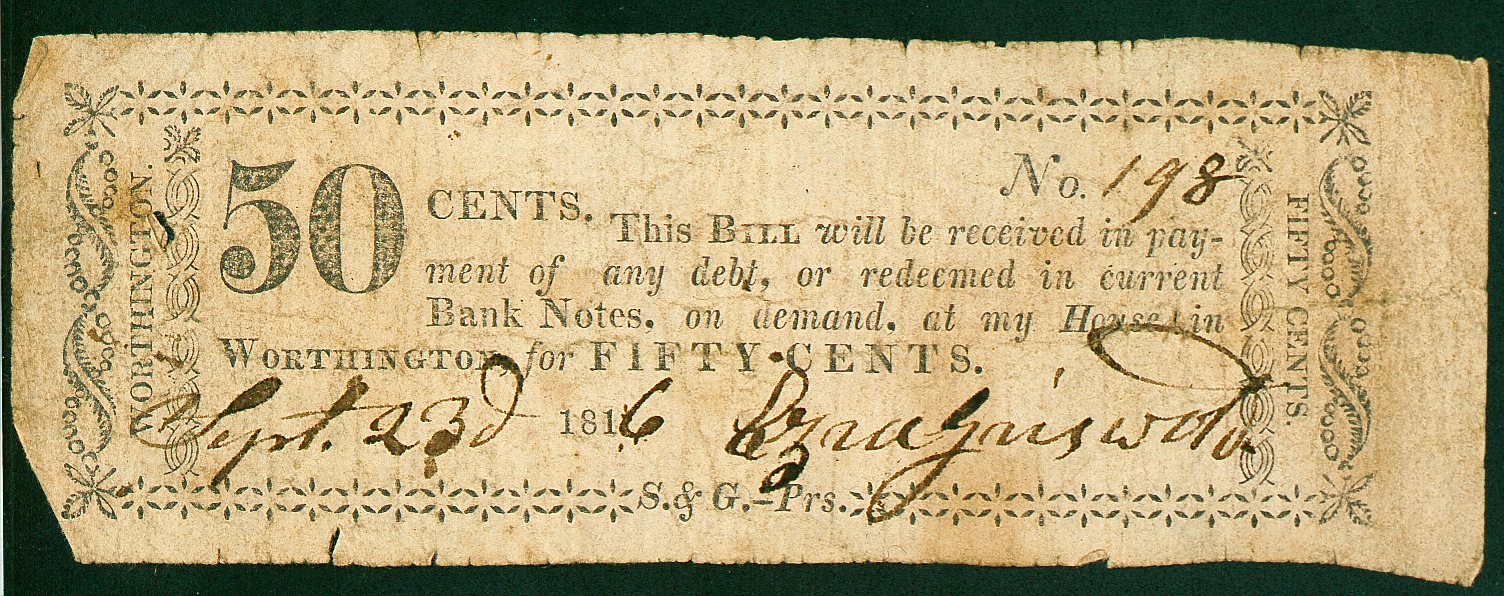 WORTHINGTON.
No. 198
50 CENTS.
This BILL will be received in pay-
ment of any debt, or redeemed in current
Bank Notes, on demand, at my House in
WORTHINGTON, for FIFTY CENTS.
Sept. 23d 1816 Ezra Griswold
S. & G.—Prs.
FIFTY CENTS.